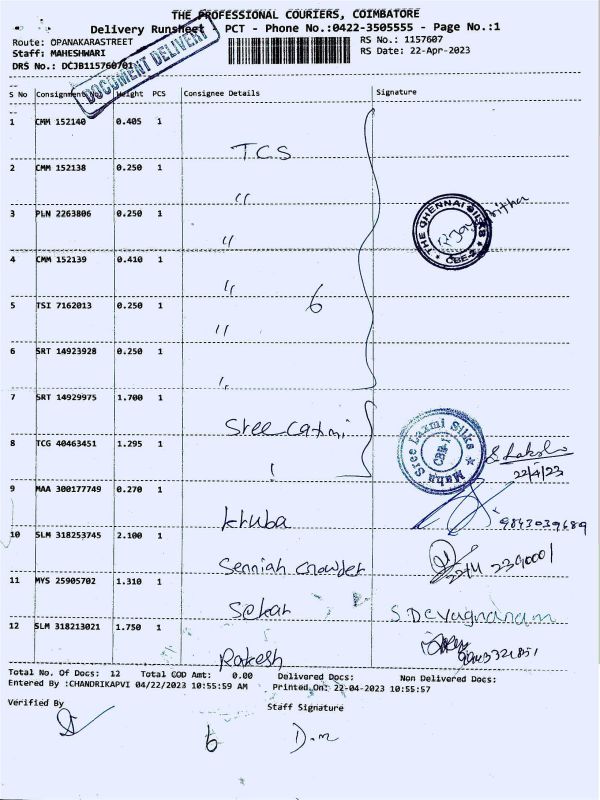 THE PROFESSIONAL COURIERS, COIMBATORE
Delivery Runsheet PCT - Phone No.:0422-3505555 - Page No.:1
Route: OPANAKARASTREET
RS No.: 1157607
Staff: MAHESHWARI
RS Date: 22-Apr-2023
DRS No.: DCJB115760701
DOCUMENT DELIVERY
S No Consignment No Weight PCS Consignee Details Signature
1 CMM 152140 0.405 1 TCS
2 CMM 152138 0.250 1 "
3 PLN 2263806 0.250 1 "
THE CHENNAI SILKS
CBE-
4 CMM 152139 0.410 1 "
6
5 TSI 7162013 0.250 1 "
6 SRT 14923928 0.250 1 "
7 SRT 14929975 1.700 1 Sree Laxmi
Maha Sree Laxmi Silks
CBE-1
8 TCG 40463451 1.295 1
22/4/23
9 MAA 300177749 0.270 1 khuba
9843039689
10 SLM 318253745 2.100 1 Senniah chowder
11 MYS 25905702 1.310 1 Sekar S. Devagnanam
12 SLM 318213021 1.750 1 Rakesh
Total No. Of Docs: 12 Total COD Amt: 0.00 Delivered Docs: Non Delivered Docs:
Entered By :CHANDRIKAPVI 04/22/2023 10:55:59 AM Printed On: 22-04-2023 10:55:57
Verified By
Staff Signature
6 D.m